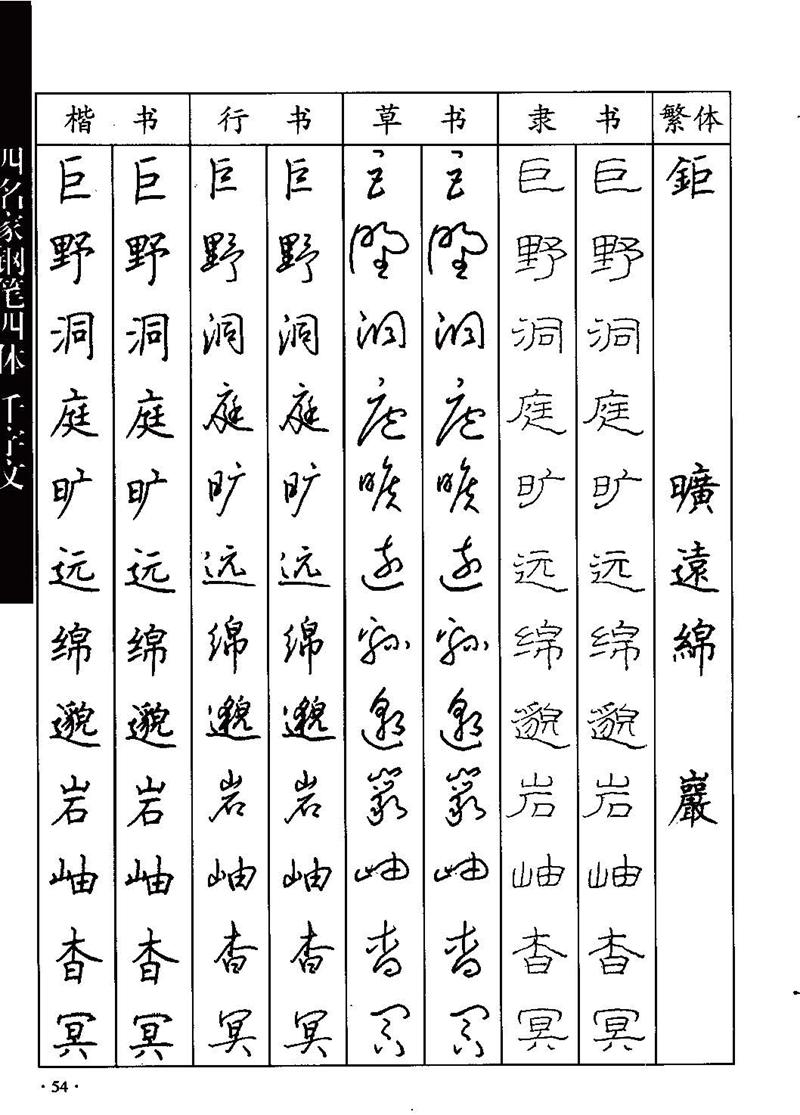 四名家钢笔四体 千字文
楷书 行书 草书 隶书 繁体
巨 巨 巨 巨 巨 巨 巨 巨 鉅
野 野 野 野 野 野 野 野
洞 洞 洞 洞 洞 洞 洞 洞
庭 庭 庭 庭 庭 庭 庭 庭
旷 旷 旷 旷 旷 旷 旷 旷 曠
远 远 远 远 远 远 远 远 遠
绵 绵 绵 绵 绵 绵 绵 绵 綿
邈 邈 邈 邈 邈 邈 邈 邈
岩 岩 岩 岩 岩 岩 岩 岩 巖
岫 岫 岫 岫 岫 岫 岫 岫
杳 杳 杳 杳 杳 杳 杳 杳
冥 冥 冥 冥 冥 冥 冥 冥
·54·